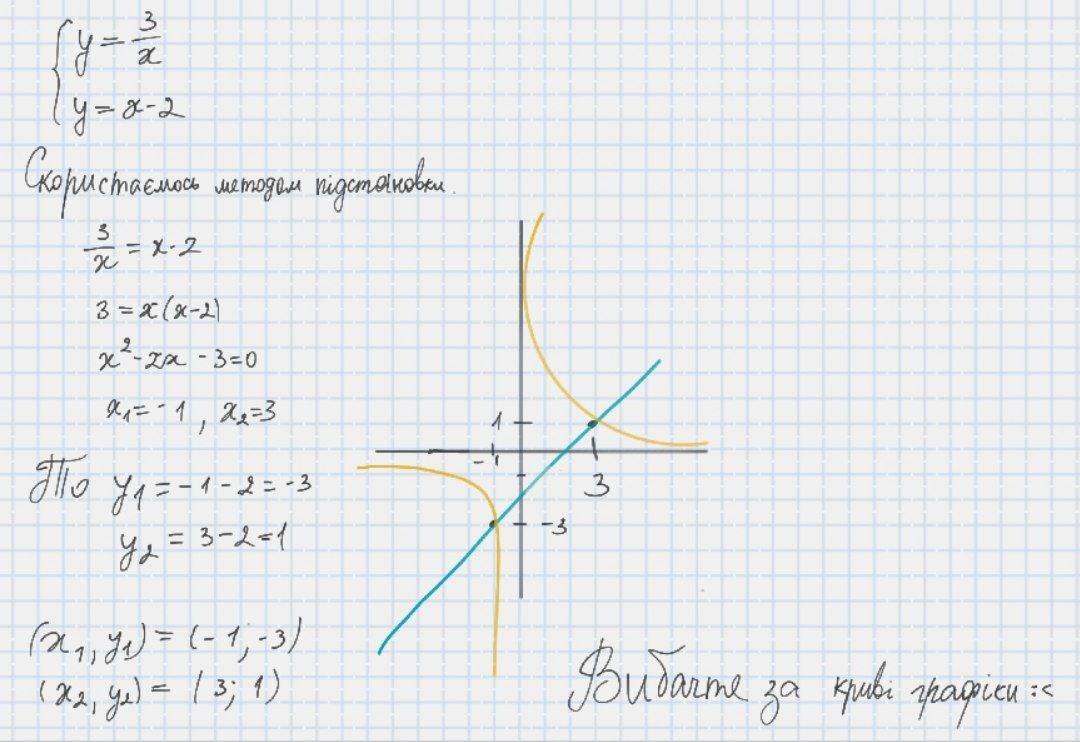 y = 3/x
y = x - 2
Скористаємось методом підстановки.
3/x = x - 2
3 = x(x-2)
x² - 2x - 3 = 0
x₁ = -1, x₂ = 3
То y₁ = -1 - 2 = -3
y₂ = 3 - 2 = 1
(x₁, y₁) = (-1; -3)
(x₂, y₂) = (3; 1)
1
-1
3
-3
Вибачте за криві графіки :<